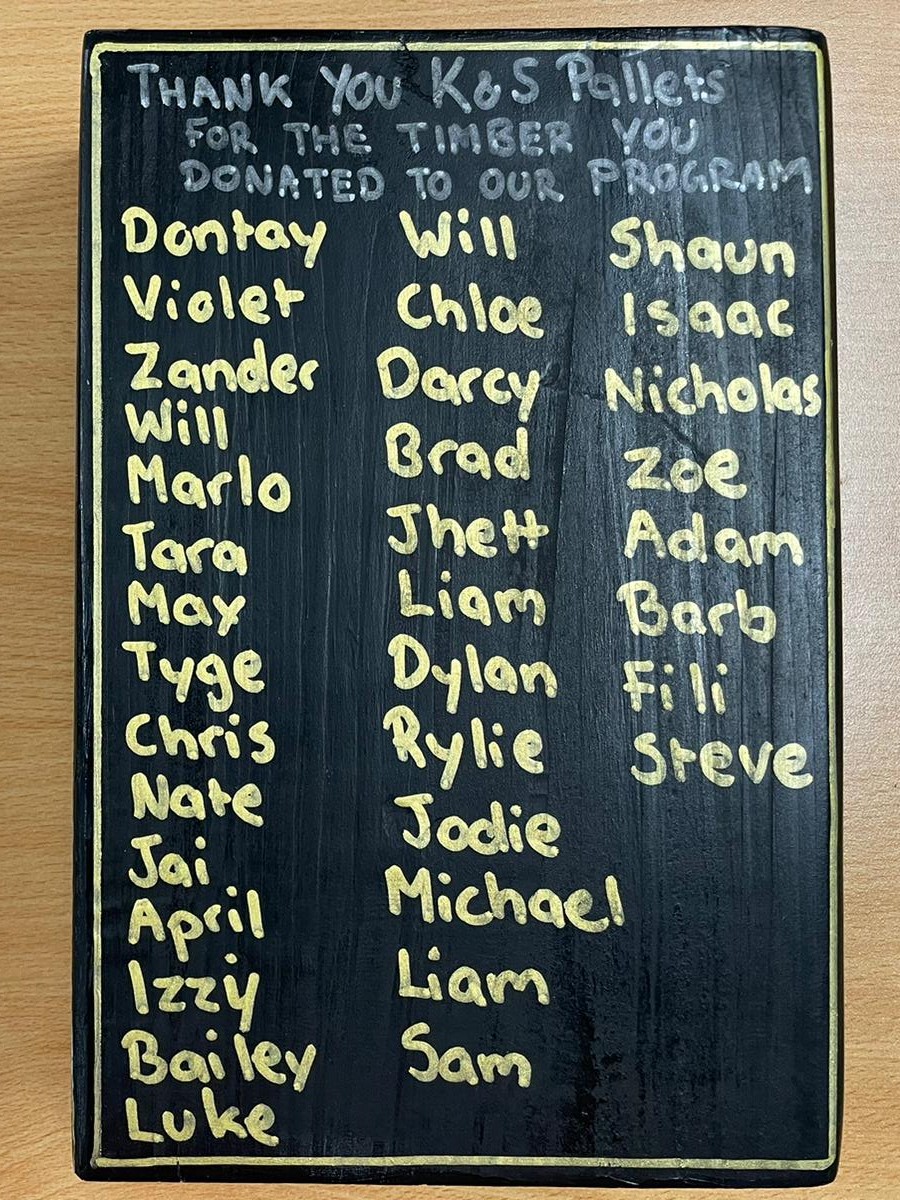 THANK YOU K&S Pallets
FOR THE TIMBER YOU
DONATED TO OUR PROGRAM
Dontay
Violet
Zander
Will
Marlo
Tara
May
Tyge
Chris
Nate
Jai
April
Izzy
Bailey
Luke
Will
Chloe
Darcy
Brad
Jhett
Liam
Dylan
Rylie
Jodie
Michael
Liam
Sam
Shaun
Isaac
Nicholas
Zoe
Adam
Barb
Fili
Steve